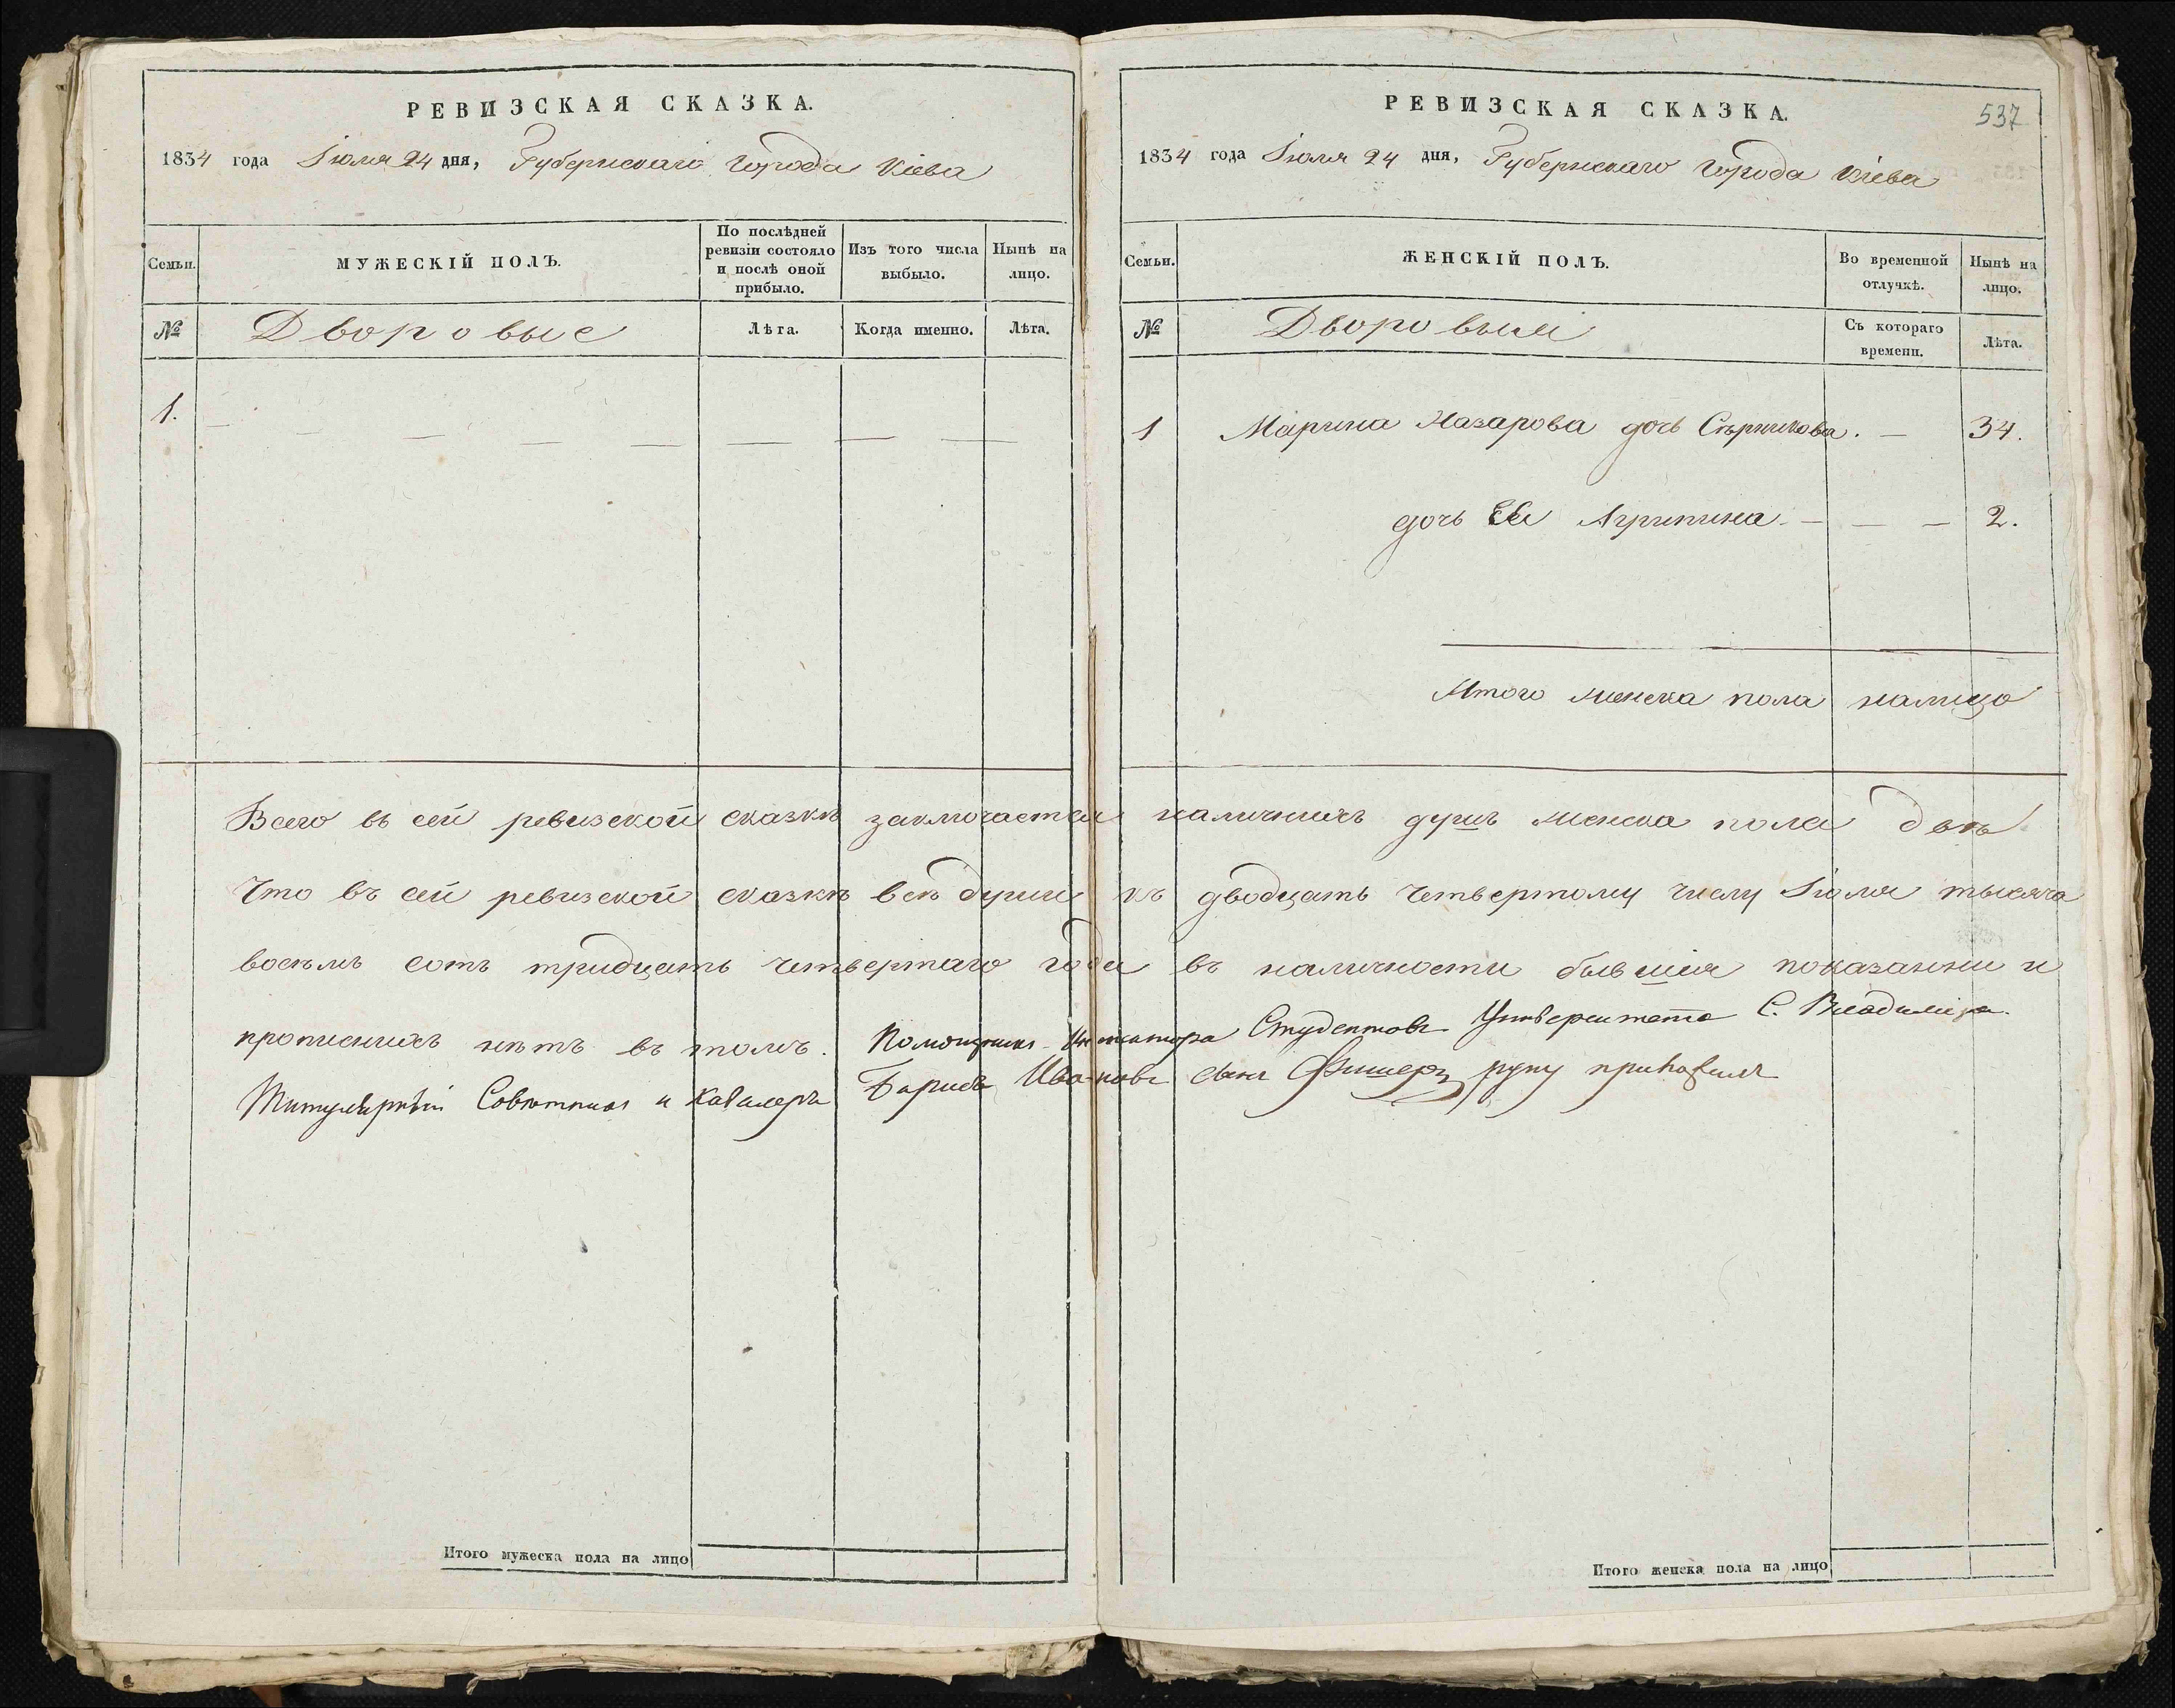 РЕВИЗСКАЯ СКАЗКА.
1834 года Іюля 24 дня, Губернскаго Города Кіева
Семьи.
МУЖЕСКІЙ ПОЛЪ.
По послѣдней ревизіи состояло и послѣ оной прибыло.
Изъ того числа выбыло.
Нынѣ на лицо.
№
Дворовые
Лѣта.
Когда именно.
Лѣта.
1.
РЕВИЗСКАЯ СКАЗКА.
537
1834 года Іюля 24 дня, Губернскаго Города Кіева
Семьи.
ЖЕНСКІЙ ПОЛЪ.
Во временной отлучкѣ.
Нынѣ на лицо.
№
Дворовыи
Съ котораго времени.
Лѣта.
1 Марина Назарова дочь Сѣрикова. — 34.
дочь Ея Агрипина — — — 2.
Итого женска пола налицо
Всего въ сей ревизской сказкѣ заключается наличныхъ душъ женска пола двѣ
Что въ сей ревизской сказкѣ всѣ души къ двадцать четвертому числу Іюля тысяча
восемъ сотъ тридцать четвертаго года въ наличности бывшія показанни и
прописныхъ нѣтъ въ томъ. Помощникъ Инспектора Студентовъ Университета С. Владиміра.
Титулярный Совѣтникъ и Кавалеръ Борисъ Ивановъ сынъ Фишеръ руку приложилъ
Итого мужеска пола на лицо
Итого женска пола на лицо